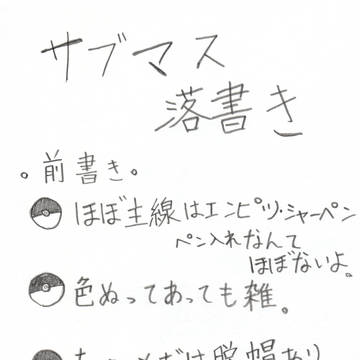 サブマス
落書き
。前書き。
ほぼ主線はエンピツ・シャーペン
ペン入れなんて
ほぼないよ。
色ぬってあっても雑。